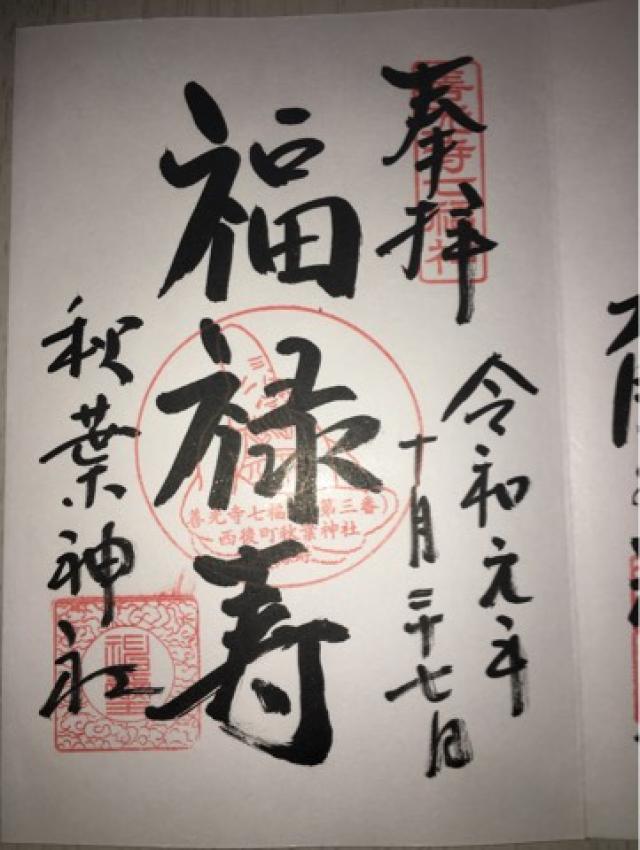 善光寺七福神
奉拝
令和元年
十月二十七日
福禄寿
善光寺七福 第三番)
西後町秋葉神社
秋葉神社